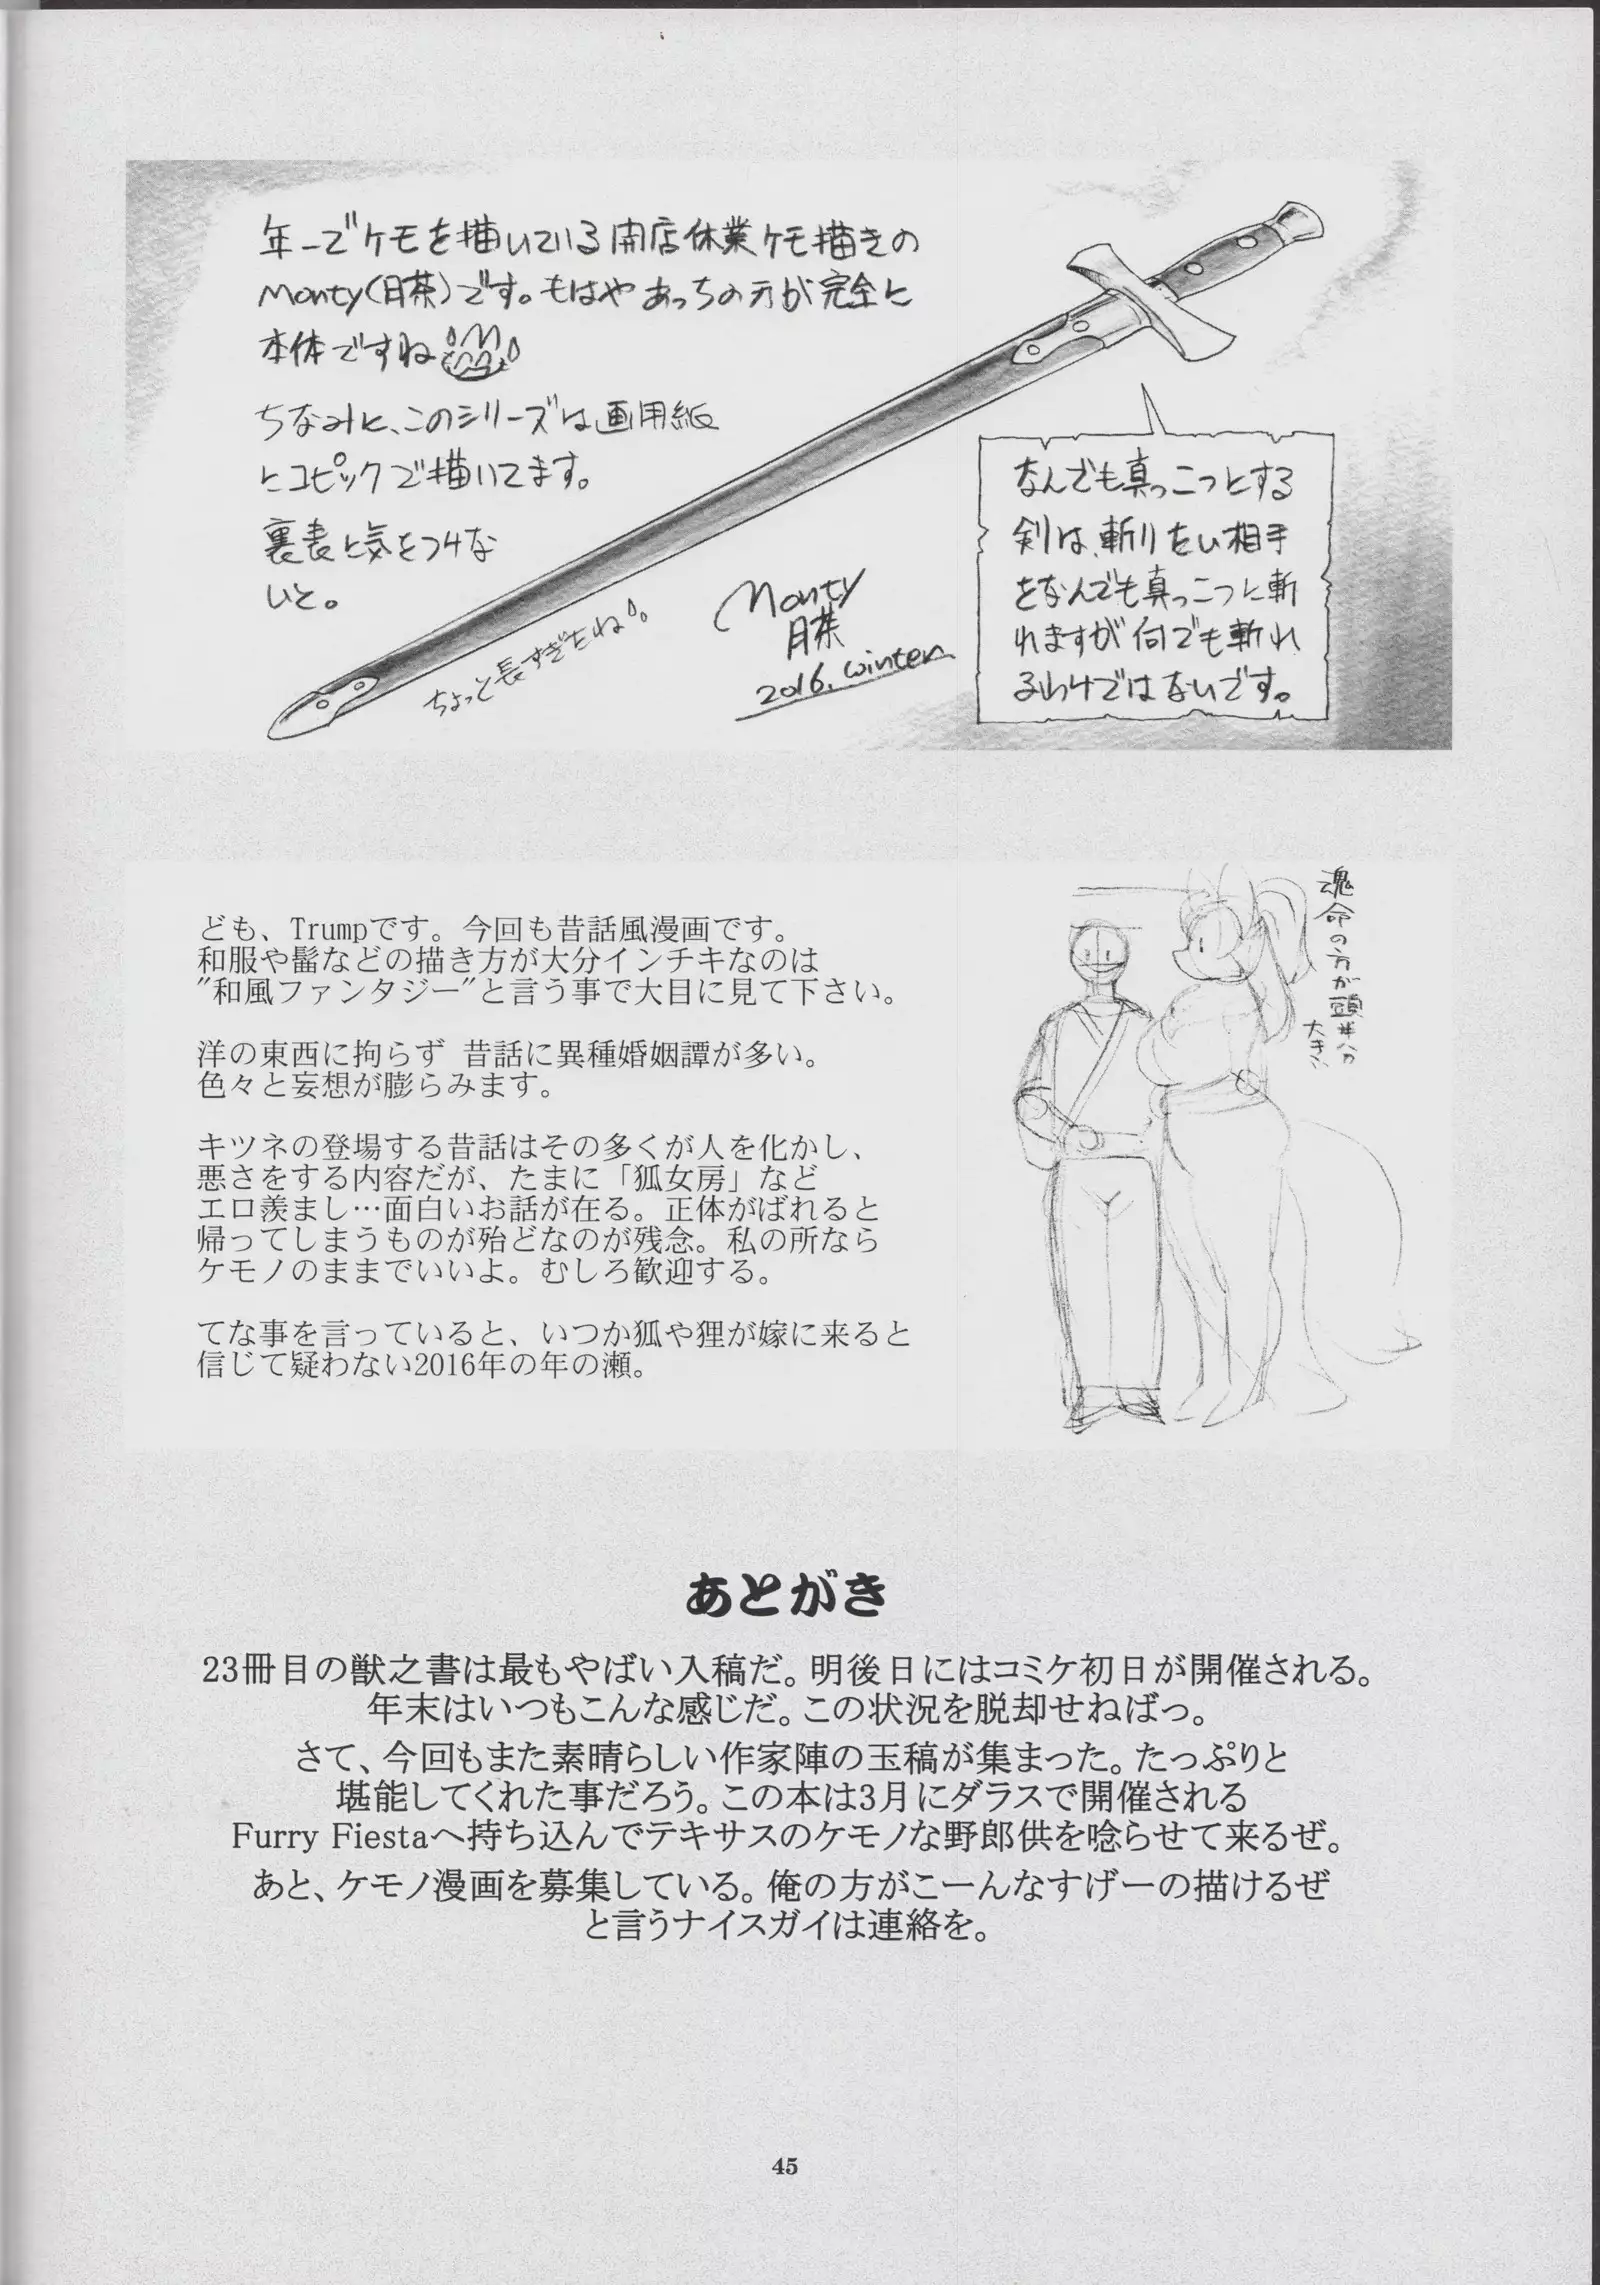 年一でケモを描いている開店休業ケモ描きの
Monty(月茶)です。もはやあっちの方が完全に
本体ですね
ちなみに、このシリーズは画用紙
にコピックで描いてます。
裏表に気をつけな
いと。
ちょっと長すぎたね
Monty
月茶
2016. winter
なんでも真っこつとする
剣は、斬りたい相手
をなんでも真っこつに斬
れますが何でも斬れ
るわけではないです。
ども、Trumpです。今回も昔話風漫画です。
和服や髷などの描き方が大分インチキなのは
"和風ファンタジー"と言う事で大目に見て下さい。
洋の東西に拘らず 昔話に異種婚姻譚が多い。
色々と妄想が膨らみます。
キツネの登場する昔話はその多くが人を化かし、
悪さをする内容だが、たまに「狐女房」など
エロ羨まし…面白いお話が在る。正体がばれると
帰ってしまうものが殆どなのが残念。私の所なら
ケモノのままでいいよ。むしろ歓迎する。
てな事を言っていると、いつか狐や狸が嫁に来ると
信じて疑わない2016年の年の瀬。
魂命の方が頭半分
大きい
あとがき
23冊目の獣之書は最もやばい入稿だ。明後日にはコミケ初日が開催される。
年末はいつもこんな感じだ。この状況を脱却せねばっ。
さて、今回もまた素晴らしい作家陣の玉稿が集まった。たっぷりと
堪能してくれた事だろう。この本は3月にダラスで開催される
Furry Fiestaへ持ち込んでテキサスのケモノな野郎供を唸らせて来るぜ。
あと、ケモノ漫画を募集している。俺の方がこーんなすげーの描けるぜ
と言うナイスガイは連絡を。
45